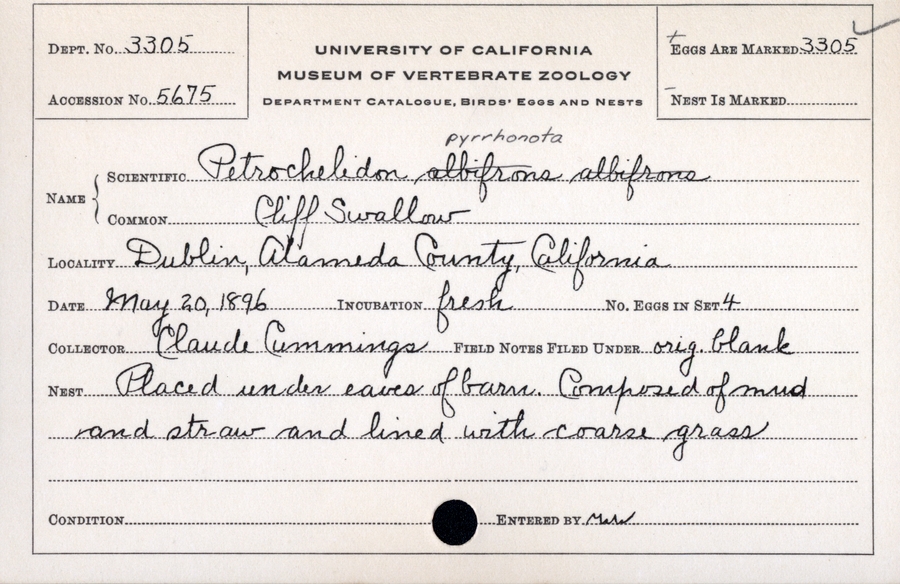 DEPT. No. 3305
ACCESSION No. 5675
UNIVERSITY OF CALIFORNIA
MUSEUM OF VERTEBRATE ZOOLOGY
DEPARTMENT CATALOGUE, BIRDS' EGGS AND NESTS
+ EGGS ARE MARKED 3305 ✓
- NEST IS MARKED
pyrrhonota
NAME { SCIENTIFIC Petrochelidon albifrons albifrons
COMMON Cliff Swallow
LOCALITY Dublin, Alameda County, California
DATE May 20, 1896 INCUBATION fresh No. EGGS IN SET 4
COLLECTOR Claude Cummings FIELD NOTES FILED UNDER orig. blank
NEST Placed under eaves of barn. Composed of mud
and straw and lined with coarse grass
CONDITION ENTERED BY